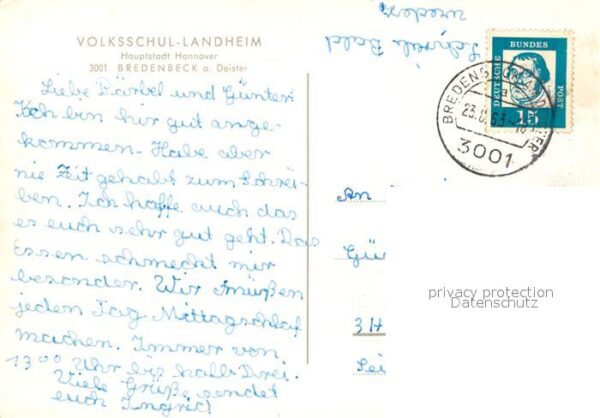 VOLKSSCHUL-LANDHEIM
Hauptstadt Hannover
3001 BREDENBECK a. Deister
Liebe Bärbel und Günter.
Ich bin hir gut ange-
kommen. Habe aber
nie Zeit gehabt zum Schrei-
ben. Ich hoffe auch das
es euch sehr gut geht. Das
Essen schmeckt mir
besonder. Wir müßen
jeden Tag Mittagschlaf
machen. Immer von
13⁰⁰ Uhr bis halb Drei.
Viele Grüße sendet
euch Ingrid
Schreibt Bald
wieder
DEUTSCHE BUNDES POST
15
3001
An
Gü
3 H
Sei
privacy protection
Datenschutz